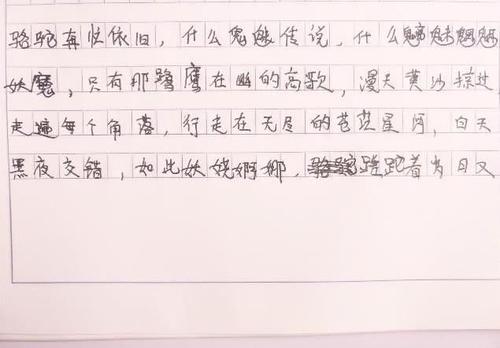 骆驼依旧，什么鬼魅传说，什么魑魅魍魉
妖魔，只有那鹭鹰在幽的高歌，漫天黄沙掠过，
走遍每个角落，行走在无尽的苍茫星河，白天
黑夜交错，如此妖娆婀娜，蹉跎着又